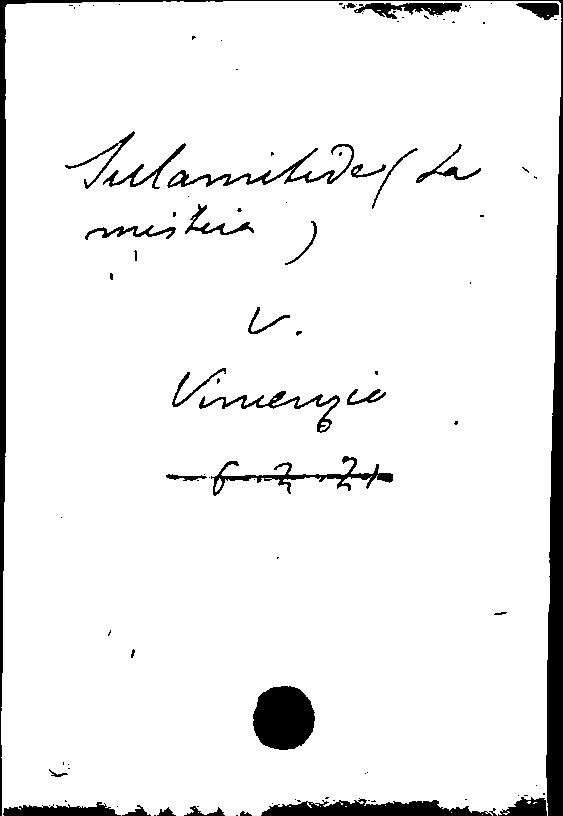 Sulamitide (La
mistica)
V.
Vincenzio
6.2.21